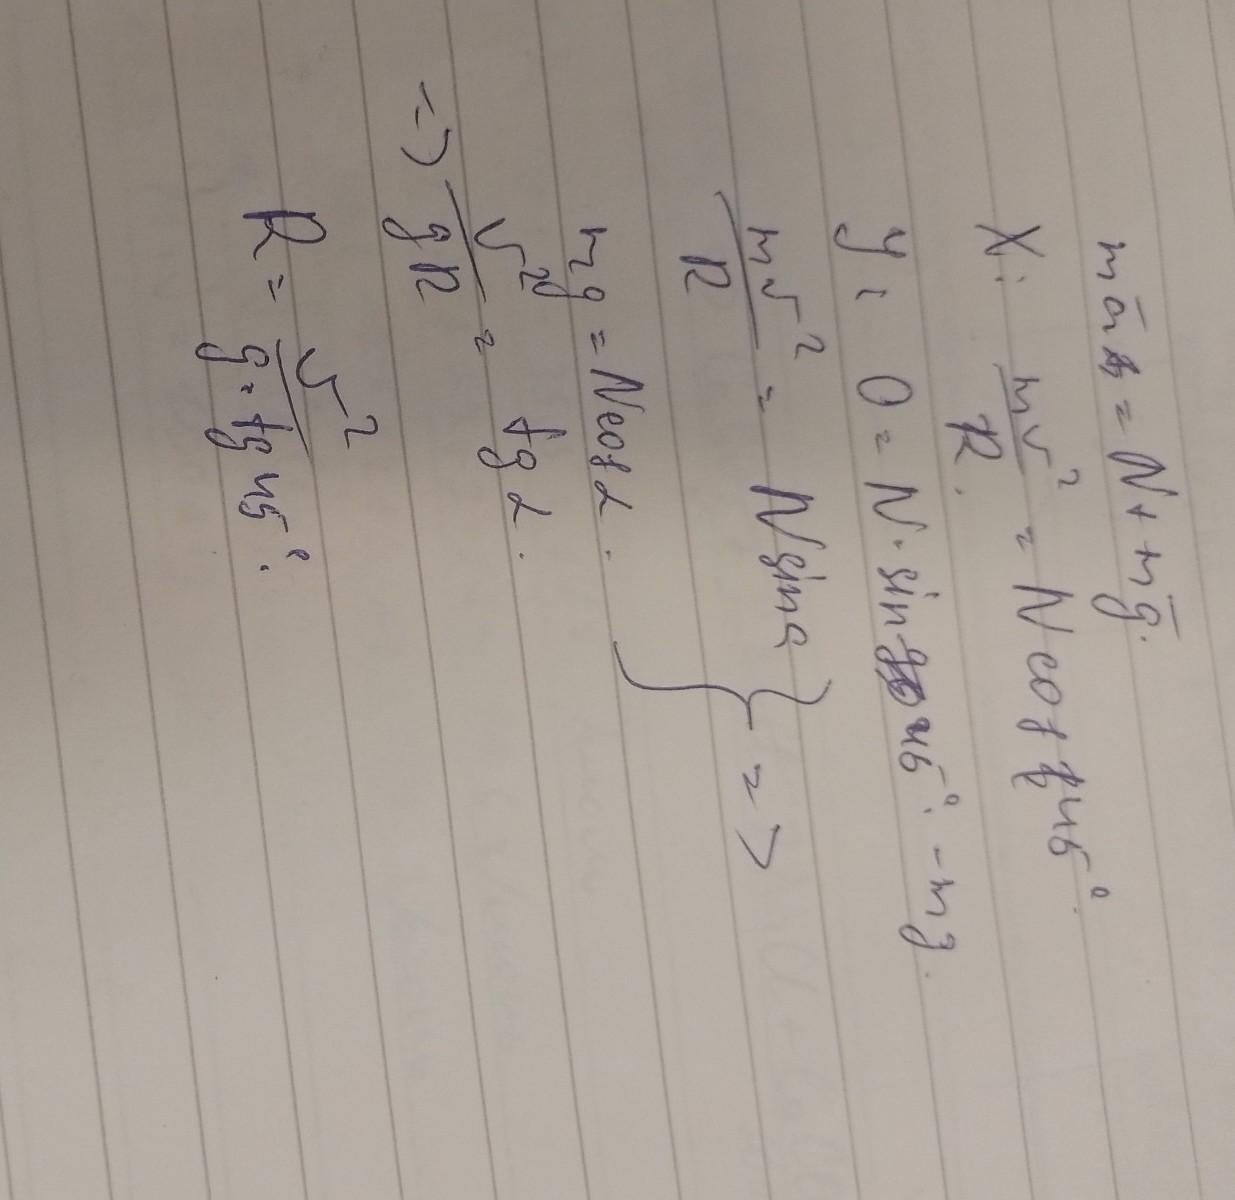 mā = N + mḡ.
X: mv²/R = N cos 45°.
y: 0 = N · sin 45° - mg.
mv²/R = N sin α } =>
mg = N cos α.
=> v²/gR = tg α.
R = v²/g · tg 45°.